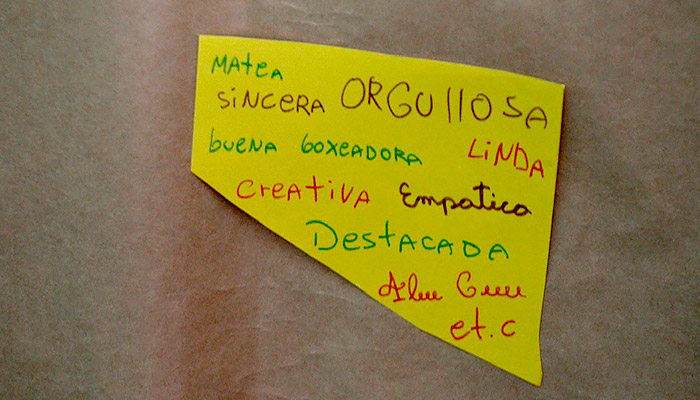 MAteA
SiNCERA ORGUllOSA
buENA boxEADORA LiNDA
CreAtiVA Empatica
DestACADA
et.c